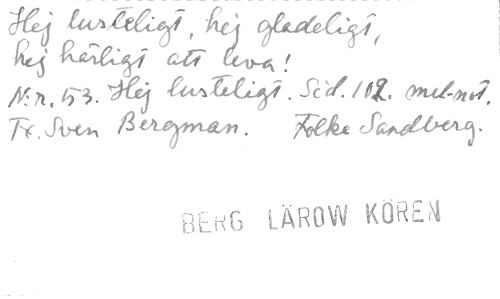 Hej lusteligt, hej gladeligt,
hej härligt att leva!
N:r. 53. Hej lusteligt. Sid. 102. mel-not.
Tx. Sven Bergman. Folke Sandberg.
BERG LÄROW KÖREN